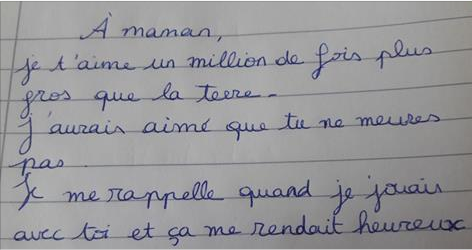 À maman,
je t'aime un million de fois plus
gros que la terre.
j'aurais aimé que tu ne meures
pas.
Je me rappelle quand je jouais
avec toi et ça me rendait heureux